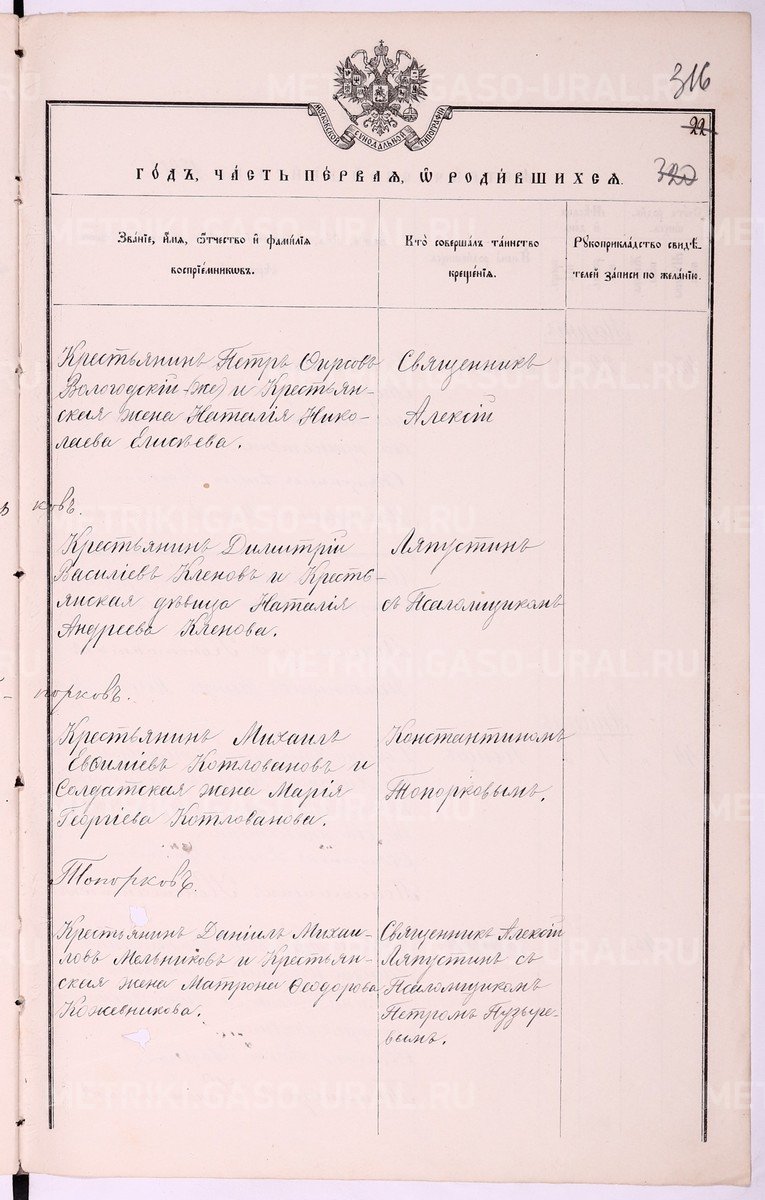 316
22.
320
МОСКОВСКОЙ СѴНОДАЛЬНОЙ ТИПОГРАФІИ
ГО́ДЪ, ЧА́СТЬ ПЕ́РВАЯ, Ѡ РОДИ́ВШИХСЯ.
Зва́нїе, и҆́мѧ, ѻ҆́тчество и҆ фами́лїѧ
воспрїе́мникѡвъ.
Кто̀ соверша́лъ та́инство
креще́нїѧ.
Рꙋкоприкла́дство свидѣ́-
телей за́писи по жела́нїю.
Крестьянинъ Петръ Ѳирсовъ
Вологодскій-же) и Крестьян-
ская жена Наталія Нико-
лаева Елисѣева.
Священникъ
Алексій
ковъ.
Крестьянинъ Димитрій
Василіевъ Кленовъ и Кресть-
янская дѣвица Наталія
Андреева Кленова.
Ляпустинъ
съ Псаломщикомъ
порковъ.
Крестьянинъ Михаилъ
Евѳиміевъ Котловановъ и
Солдатская жена Марія
Георгіева Котлованова.
Константиномъ
Топорковымъ.
Топорковъ.
Крестьянинъ Даніилъ Михаи-
ловъ Мельниковъ и Крестьян-
ская жена Матрона Ѳеодорова
Кожевникова.
Священникъ Алексій
Ляпустинъ съ
Псаломщикомъ
Петромъ Пузыре-
вымъ.
METRIKI.GASO-URAL.RU